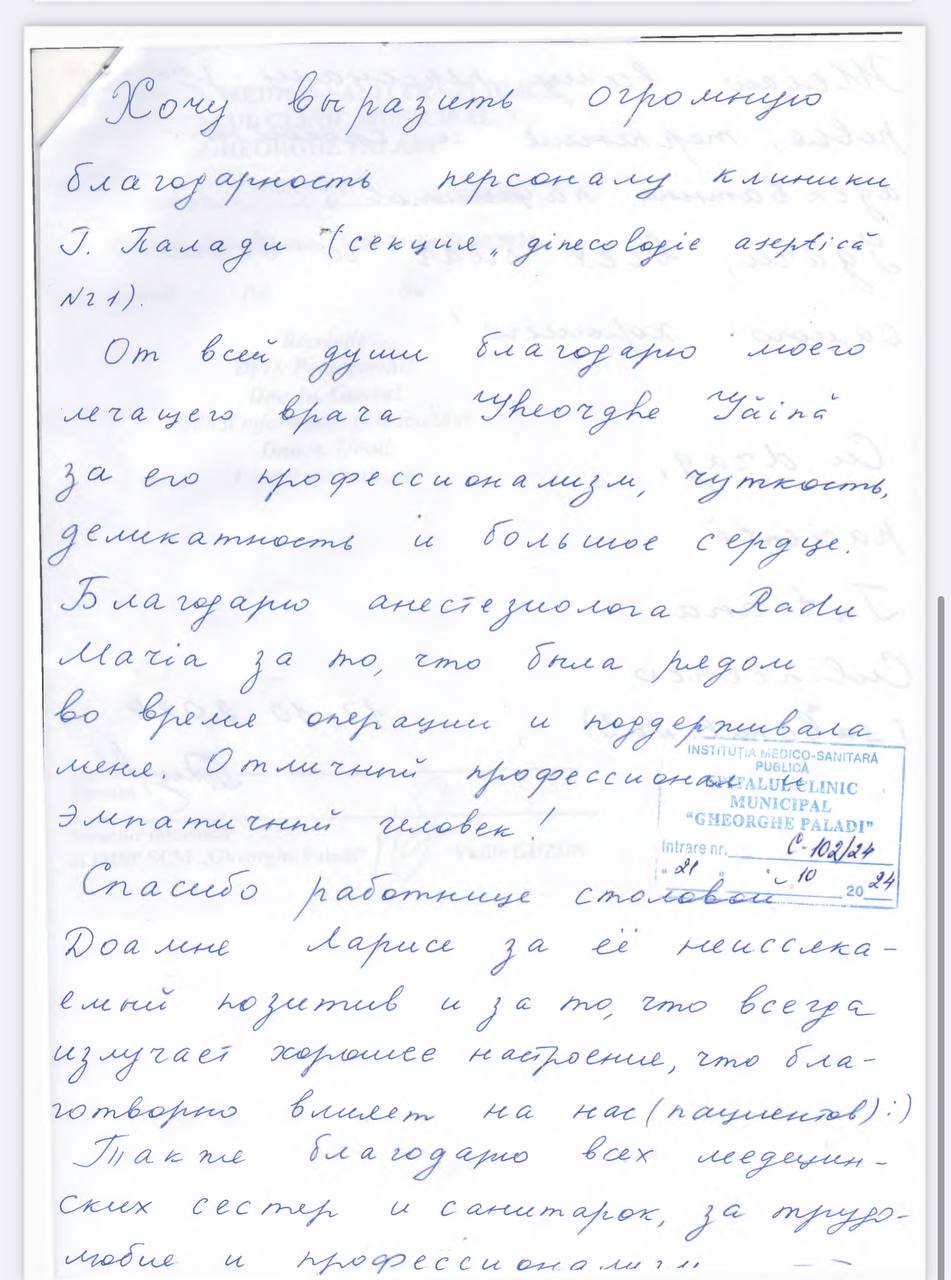 Хочу выразить огромную
благодарность персоналу клиники
Г. Палади (секция „ginecologie aseptică
Nr 1).
От всей души благодарю моего
лечащего врача Gheorghe Găină
за его профессионализм, чуткость,
деликатность и большое сердце.
Благодарю анестезиолога Radu
Maria за то, что была рядом
во время операции и поддерживала
меня. Отличный профессионал и
эмпатичный человек!
INSTITUȚIA MEDICO-SANITARĂ
PUBLICĂ
SPITALUL CLINIC
MUNICIPAL
"GHEORGHE PALADI"
Intrare nr. C-102/24
" 21 " 10 2024
Спасибо работнице столовой
Доамне Ларисе за её неиссяка-
емый позитив и за то, что всегда
излучает хорошее настроение, что бла-
готворно влияет на нас (пациентов) :)
Также благодарю всех медецин-
ских сестер и санитарок, за трудо-
любие и